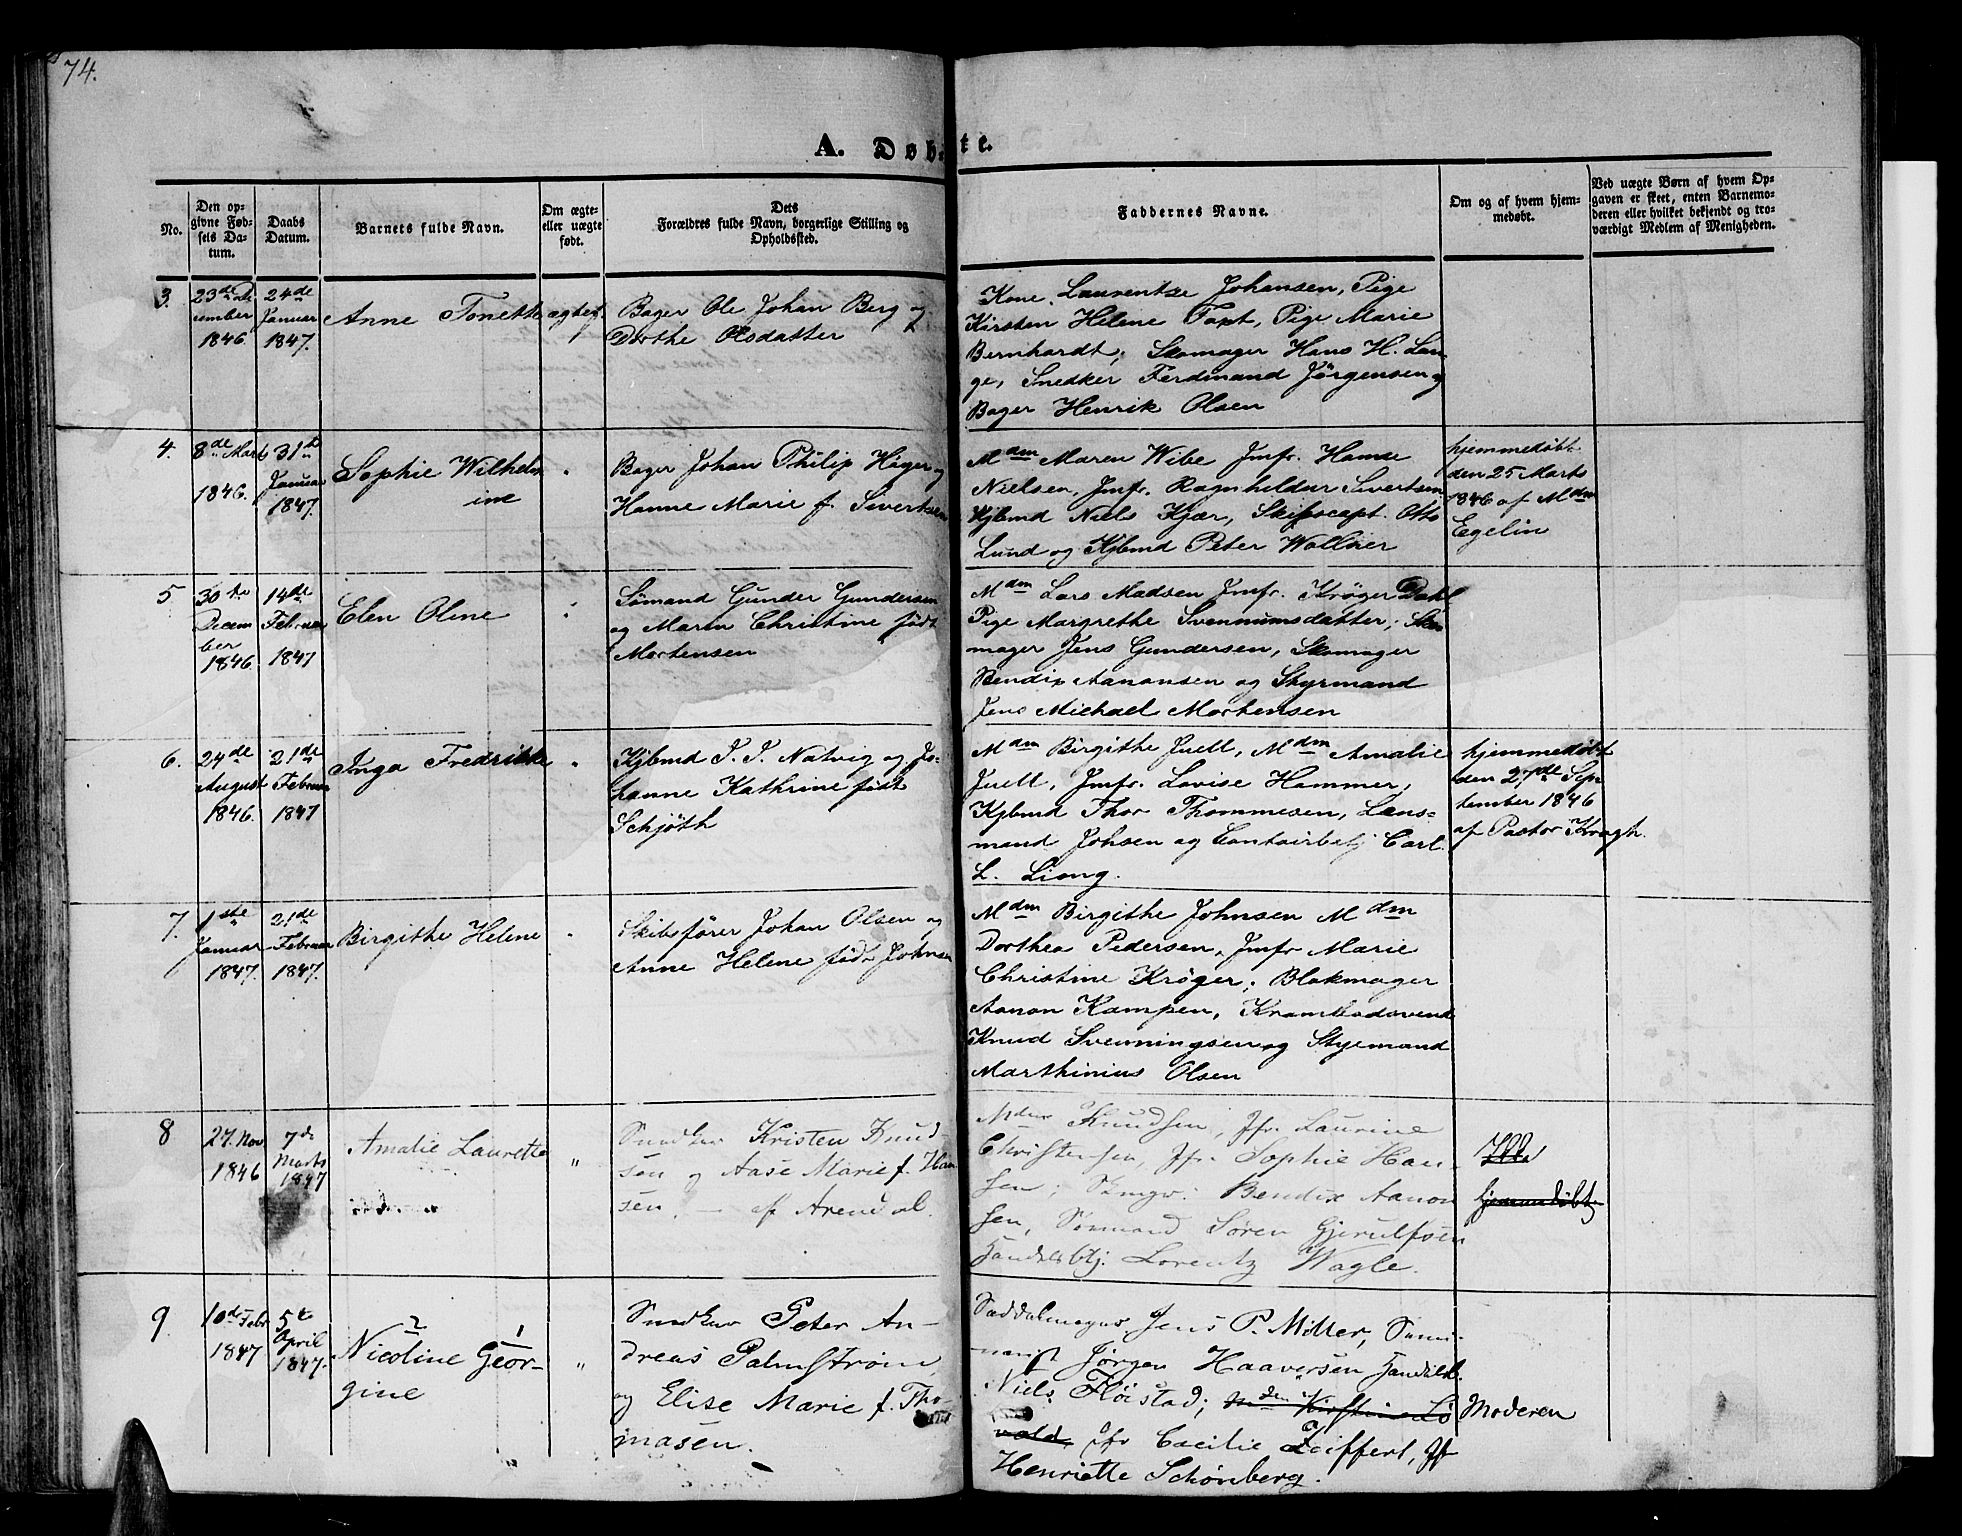 74.
A. Døbte.
No.
Den op-
givne Fød-
sels Da-
tum.
Daabs
Datum.
Barnets fulde Navn.
Om ægte-
eller uægte
født.
Dets
Forældres fulde Navn, borgerlige Stilling og
Opholdssted.
Faddernes Navne.
Om og af hvem hjem-
medøbt.
Ved uægte Børn af hvem Op-
gaven er skeet, enten Barnemo-
deren eller hvilket bekjendt og tro-
værdigt Medlem af Menigheden.
3.
23de De
cember
1846
24de
Januar
1847.
Anne Tonette
ægtef.
Bager Ole Johan Berg og
Dorthe Olsdatter
Kone Laurentze Johansen, Pige
Kirsten Helene Toxt, Pige Marie
Bernhardt; Skomager Hans H. Lan-
ge, Snedker Ferdinand Jörgensen og
Bager Henrik Olsen
4.
8de Marts
1846.
31te
Januar
1847.
Sophie Wilhelm
ine
"
Bager Johan Philip Häger og
Hanne Marie f. Sivertsen
Mdm Maren Wibe Jmfr. Hanse
Nielsen, Jmfr. Ragnhildur Sivertsen
Kjbmd Niels Kjær, Skibscapt. Otto
Lund og Kjbmd Peter Wallöer
hjemmedøbt
den 25 Marts
1846 af Mdm
Egelin
5
30te
Decem
ber
1846
14de
Februar
1847
Elen Oline
"
Sömand Gunder Gundersen
og Maren Christine født
Mortensen
Mdm Lars Madsen Jmfr. Kröger Dahl
Pige Margrethe Svennumsdatter; Sko
mager Jens Gundersen, Skomager
Bendix Aanonsen og Styrmand
Jens Michael Mortensen
6.
24de
August
1846.
21de
Februar
1847
Inga Fredrikke
"
Kjbmd P. P. Natvig og Jo-
hanne Kathrine født
Schjöth
Mdm Birgithe Juell, Mdm Amalie
Juell, Jmfr. Lovise Hammer,
Kjbmd Thor Thommesen, Lens-
mand Johsen og Contoirbetj Carl
L. Liong.
hjemmedøbt
den 27de Sep
tember 1846
af Pastor Krogh.
7.
1ste
Januar
1847.
21de
Februar
1847.
Birgithe Helene
"
Skibsfører Johan Olsen og
Anne Helene født Johnsen
Mdm Birgithe Johnsen Mdm
Dorthea Pedersen, Jmfr Marie
Christine Kröger; Blokmager
Aanon Kampen, Krambodsvend
Knud Svenningsen og Styrmand
Marthinius Olsen
8
27. Nov
1846
7de
Marts
1847
Amalie Laurette
"
Snedker Kristen Knud-
sen og Aase Marie f. Han
sen, — af Arendal.
Mdm Knudsen, Jfr. Laurine
Christensen, Jfr. Sophie Han-
sen; Skmgr: Bendix Aanon
sen, Sømand Søren Gjerulfsen
Handelsbtj. Lorentz Wagle.
Ikke
hjemmedøbt
9.
10de Febr
1847
5te
April
1847.
2 1
Nicoline Geor-
gine
"
Snedker Peter An-
dreas Palmstrøm
og Elise Marie f. Tho-
masen.
Saddelmager Jens P. Möller,
Jørgen Haaversen Handelsb.
Niels Fløistad; Mdm Kirstine Lö
vold, Jfr Cecilie Seiffert, Jfr
Henriette Schønberg.
Moderen